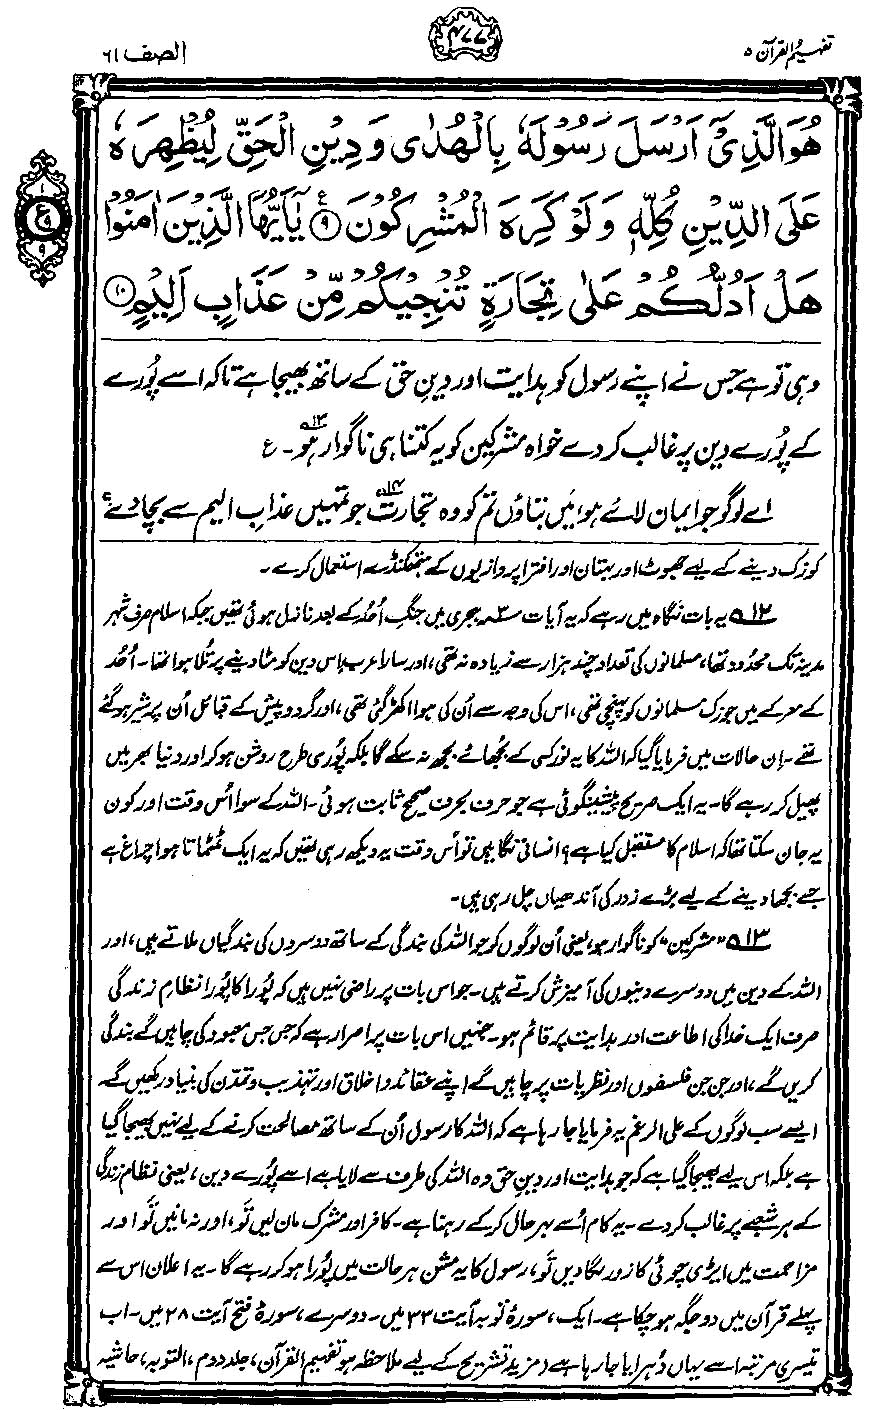 تفہیم القرآن ۵
۴۷۷
الصف ۶۱
هُوَ الَّذِیْۤ اَرْسَلَ رَسُوْلَهٗ بِالْهُدٰی وَ دِیْنِ الْحَقِّ لِیُظْهِرَهٗ
عَلَی الدِّیْنِ كُلِّهٖ وَ لَوْ كَرِهَ الْمُشْرِكُوْنَ ۹ یٰۤاَیُّهَا الَّذِیْنَ اٰمَنُوْا
هَلْ اَدُلُّكُمْ عَلٰی تِجَارَةٍ تُنْجِیْكُمْ مِّنْ عَذَابٍ اَلِیْمٍ ۱۰
۱
ع
۹
۹
وہی تو ہے جس نے اپنے رسول کو ہدایت اور دینِ حق کے ساتھ بھیجا ہے تاکہ اسے پُورے
کے پُورے دین پر غالب کر دے خواہ مشرکین کو یہ کتنا ہی ناگوار ہو۱۳۔ ع
اے لوگو جو ایمان لائے ہو، میں بتاؤں تم کو وہ تجارت۱۴ جو تمہیں عذابِ الیم سے بچا دے؟
کو زک دینے کے لیے جھوٹ اور بہتان اور افترا پردازیوں کے ہتھکنڈے استعمال کرے۔
۱۲ یہ بات نگاہ میں رہے کہ یہ آیات ۳ھ ہجری میں جنگِ اُحُد کے بعد نازل ہوئی تھیں جبکہ اسلام صرف شہر
مدینہ تک محدود تھا، مسلمانوں کی تعداد چند ہزار سے زیادہ نہ تھی، اور سارا عرب اِس دین کو مٹا دینے پر تُلا ہوا تھا۔ اُحُد
کے معرکے میں جو زک مسلمانوں کو پہنچی تھی، اس کی وجہ سے اُن کی ہوا اکھڑ گئی تھی، اور گرد و پیش کے قبائل اُن پر شیر ہو گئے
تھے۔ اِن حالات میں فرمایا گیا کہ اللہ کا یہ نور کسی کے بُجھائے بجھ نہ سکے گا بلکہ پُوری طرح روشن ہو کر اور دنیا بھر میں
پھیل کر رہے گا۔ یہ ایک صریح پیشینگوئی ہے جو حرف بحرف صحیح ثابت ہوئی۔ اللہ کے سوا اُس وقت اور کون
یہ جان سکتا تھا کہ اسلام کا مستقبل کیا ہے؟ انسانی نگاہیں تو اُس وقت یہ دیکھ رہی تھیں کہ یہ ایک ٹمٹماتا ہوا چراغ ہے
جسے بجھا دینے کے لیے بڑے زور کی آندھیاں چل رہی ہیں۔
۱۳ ”مشرکین“ کو ناگوار ہو، یعنی اُن لوگوں کو جو اللہ کی بندگی کے ساتھ دوسروں کی بندگیاں ملاتے ہیں، اور
اللہ کے دین میں دوسرے دینوں کی آمیزش کرتے ہیں۔ جو اس بات پر راضی نہیں ہیں کہ پُورا کا پُورا نظامِ زندگی
صرف ایک خدا کی اطاعت اور ہدایت پر قائم ہو۔ جنہیں اس بات پر اصرار ہے کہ جس جس معبود کی چاہیں گے بندگی
کریں گے، اور جن جن فلسفوں اور نظریات پر چاہیں گے اپنے عقائد و اخلاق اور تہذیب و تمدن کی بنیاد رکھیں گے
ایسے سب لوگوں کے علی الرغم یہ فرمایا جا رہا ہے کہ اللہ کا رسول اُن کے ساتھ مصالحت کرنے کے لیے نہیں بھیجا گیا
ہے بلکہ اس لیے بھیجا گیا ہے کہ جو ہدایت اور دینِ حق وہ اللہ کی طرف سے لایا ہے اسے پُورے دین، یعنی نظامِ زندگی
کے ہر شعبے پر غالب کر دے۔ یہ کام اُسے بہرحال کر کے رہنا ہے۔ کافر اور مشرک مان لیں تو، اور نہ مانیں تو اور
مزاحمت میں ایڑی چوٹی کا زور لگا دیں تو، رسول کا یہ مشن ہر حالت میں پُورا ہو کر رہے گا۔ یہ اعلان اس سے
پہلے قرآن میں دو جگہ ہو چکا ہے۔ ایک، سورۂ توبہ آیت ۳۳ میں۔ دوسرے، سورۂ فتح آیت ۲۸ میں۔ اب
تیسری مرتبہ اسے یہاں دُہرایا جا رہا ہے (مزید تشریح کے لیے ملاحظہ ہو تفہیم القرآن، جلد دوم، التوبہ، حاشیہ